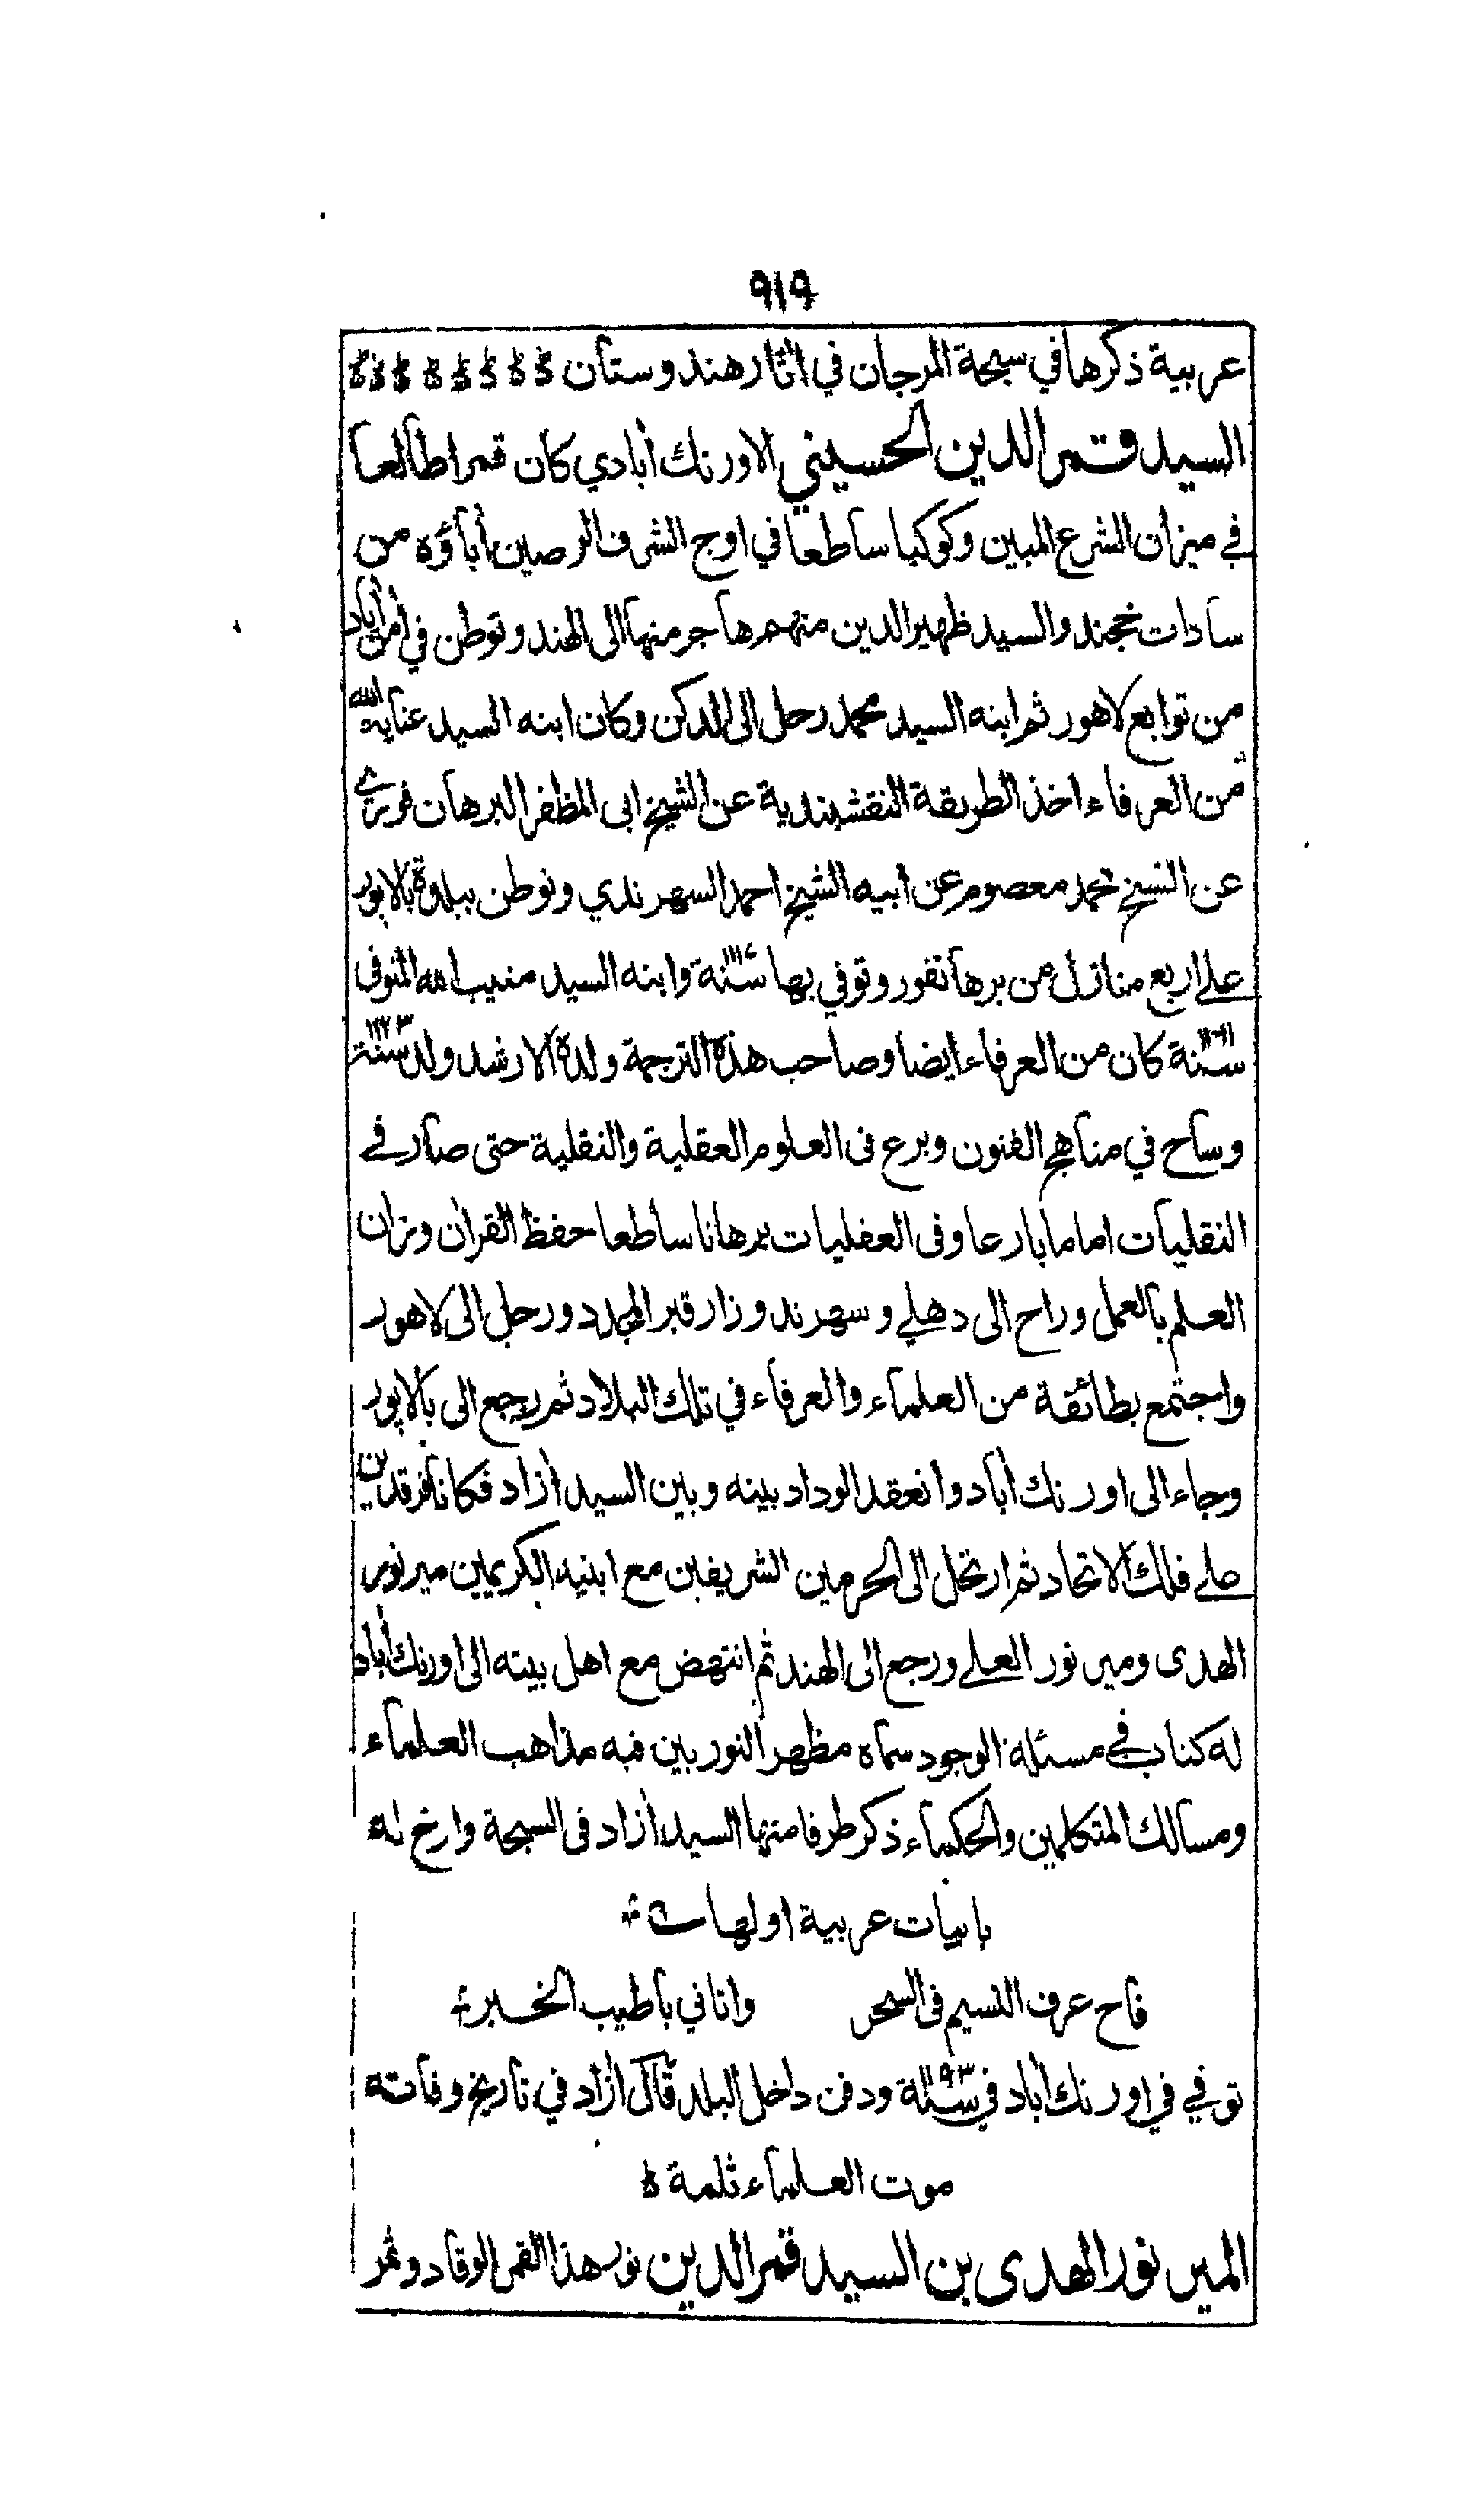 ٩١٩
عربية ذكرها في سبحة المرجان في اثار هندوستان
السيد قمر الدين الحسيني الاورنك أبادي كان قمرا طالعا
في ميزان الشرع المبين وكوكبا ساطعا في اوج الشرف الرصين أباؤه من
سادات خجند والسيد ظهير الدين منهم هاجر منها الى الهند وتوطن في أمن أباد
من توابع لاهور ثم ابنه السيد محمد رحل الى الدكن وكان ابنه السيد عناية الله
من العرفاء اخذ الطريقة النقشبندية عن الشيخ ابى المظفر البرهان فوري
عن الشيخ محمد معصوم عن ابيه الشيخ احمد السهرندي وتوطن ببلدة بالاپور
على اربع منازل من برهانفور وتوفي بها سنة وابنه السيد منيب الله المتوفى
سنة كان من العرفاء ايضا وصاحب هذه الترجمة ولده الارشد ولد سنة ١١٢٣
وساح في مناهج الفنون وبرع فى العلوم العقلية والنقلية حتى صار في
النقليات اماما بارعا وفى العقليات برهانا ساطعا حفظ القرأن وزان
العلم بالعمل وراح الى دهلي وسهرند وزار قبر المجدد ورحل الى لاهور
واجتمع بطائفة من العلماء والعرفاء في تلك البلاد ثم رجع الى بالاپور
وجاء الى اورنك أباد وانعقد الوداد بينه وبين السيد أزاد فكانا فرقدين
على فلك الاتحاد ثم ارتحل الى الحرمين الشريفين مع ابنيه الكريمين مير نور
الهدى ومير نور العلى ورجع الى الهند ثم انتهض مع اهل بيته الى اورنك أباد
له كتاب في مسئلة الوجود سماه مظهر النور بين فيه مذاهب العلماء
ومسالك المتكلمين والحكماء ذكر طرفا منها السيد أزاد فى السبحة وارخ له
بابيات عربية اولها
فاح عرف النسيم فى السحر واتاني باطيب الخبر
توفي في اورنك أباد في سنة ١١٩٣ ودفن داخل البلد قال أزاد في تاريخ وفاته
موت العلماء ثلمة
المير نور الهدى بن السيد قمر الدين نور هذا القمر الوقاد وثمر